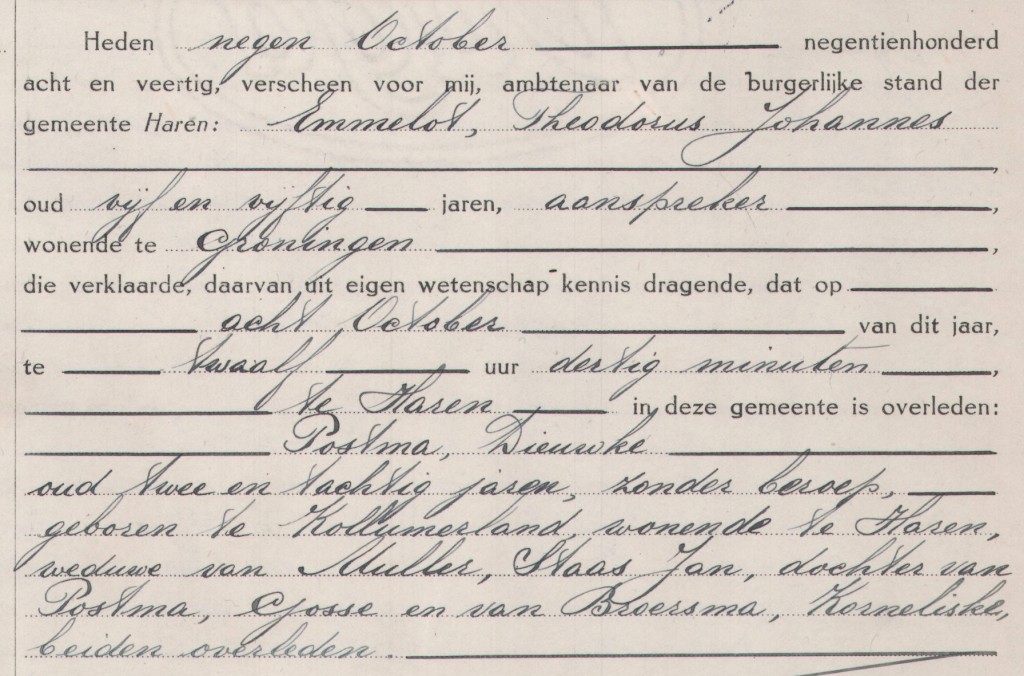 Heden negen October negentienhonderd
acht en veertig, verscheen voor mij, ambtenaar van de burgerlijke stand der
gemeente Haren: Emmelot, Theodorus Johannes
oud vijf en vijftig jaren, aanspreker,
wonende te Groningen,
die verklaarde, daarvan uit eigen wetenschap kennis dragende, dat op
acht October van dit jaar,
te twaalf uur dertig minuten,
te Haren in deze gemeente is overleden:
Postma, Dieuwke
oud twee en tachtig jaren, zonder beroep,
geboren te Kollumerland, wonende te Haren,
weduwe van Muller, Staas Jan, dochter van
Postma, Gosse en van Broersma, Korneliske,
beiden overleden.